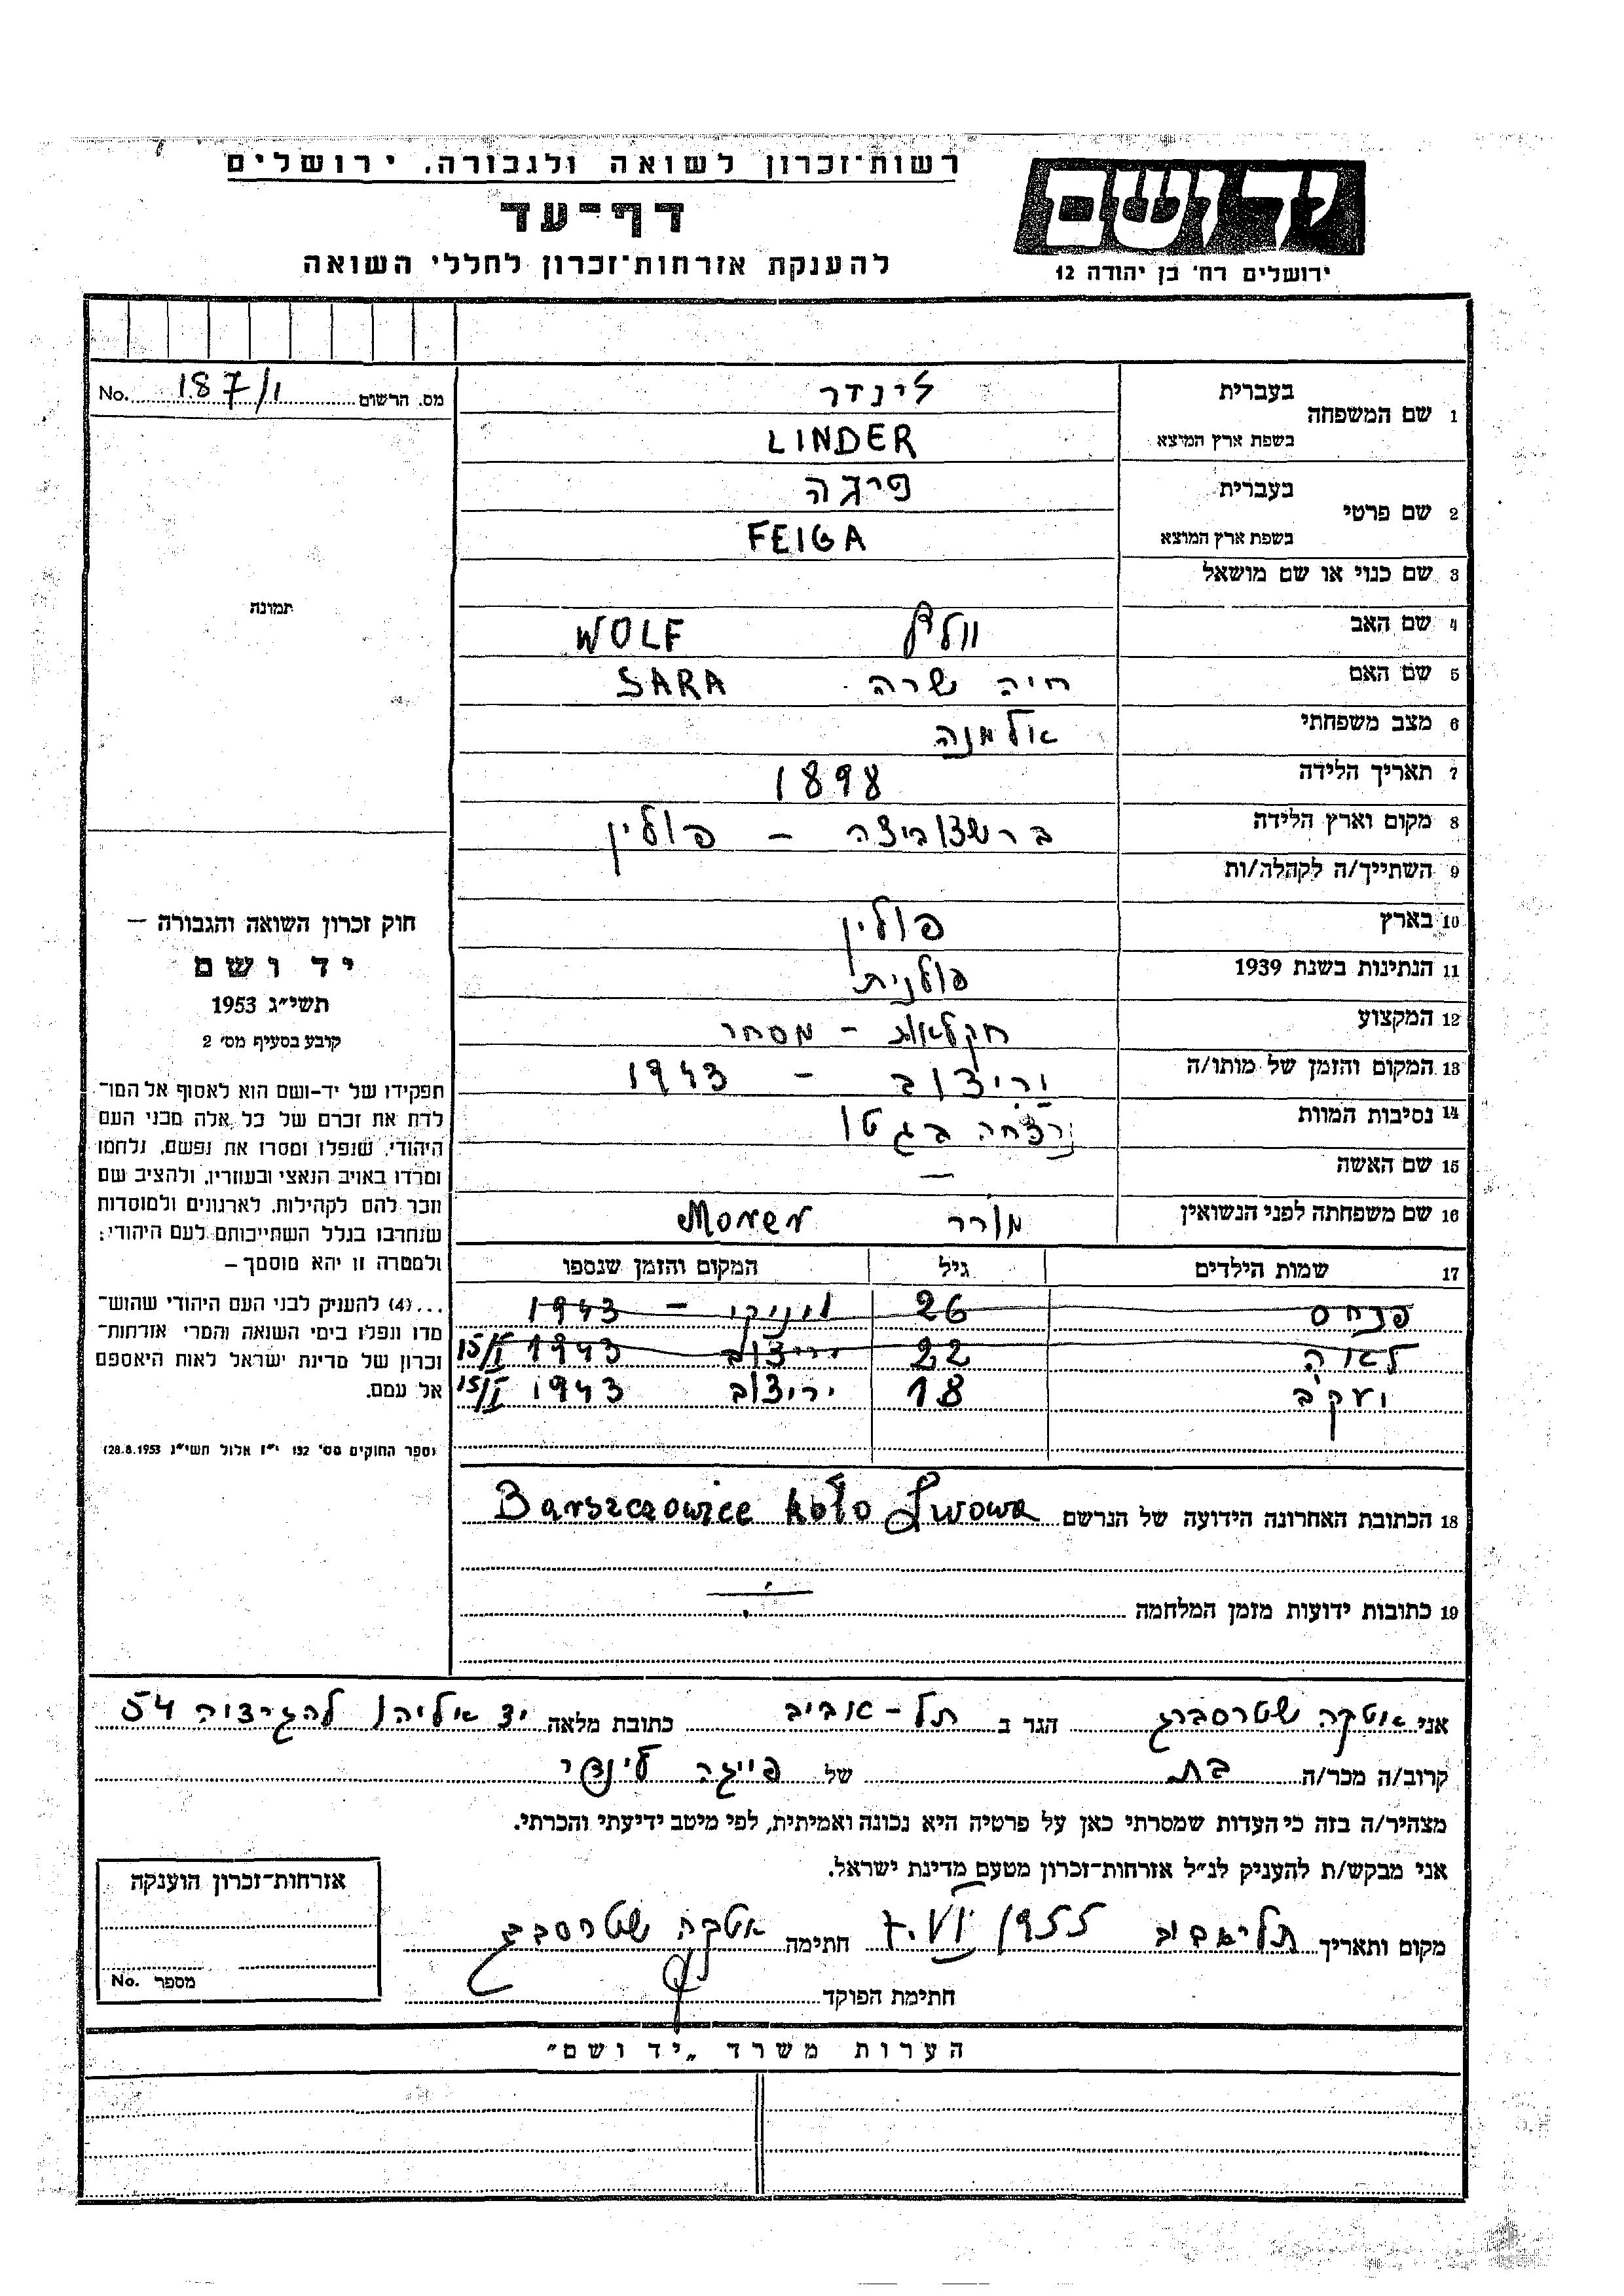 רשות־זכרון לשואה ולגבורה. ירושלים
דף־עד
להענקת אזרחות־זכרון לחללי השואה
יד ושם
ירושלים רח' בן יהודה 12
No. 187/1 מס. הרשום
1 שם המשפחה
בעברית לינדר
בשפת ארץ המוצא LINDER
2 שם פרטי
בעברית פיגה
בשפת ארץ המוצא FEIGA
3 שם כנוי או שם מושאל
4 שם האב וולף WOLF
5 שם האם חיה שרה SARA
6 מצב משפחתי אלמנה
7 תאריך הלידה 1898
8 מקום וארץ הלידה ברשצוביצה – פולין
9 השתייך/ה לקהלה/ות
10 בארץ פולין
11 הנתינות בשנת 1939 פולנית
12 המקצוע חקלאות – מסחר
13 המקום והזמן של מותו/ה יריצוב – 1943
14 נסיבות המוות נרצחה בגטו
15 שם האשה —
16 שם משפחתה לפני הנשואין מורר Morer
17 שמות הילדים גיל המקום והזמן שנספו
פנחס 26 – 1943
לאוה 22 יריצוב 1943 15/I
יעקב 18 יריצוב 1943 15/I
18 הכתובת האחרונה הידועה של הנרשם Barszczowice koło Lwowa
19 כתובות ידועות מזמן המלחמה
תמונה
חוק זכרון השואה והגבורה –
יד ושם
תשי״ג 1953
קובע בסעיף מס' 2
תפקידו של יד-ושם הוא לאסוף אל המו־
לדת את זכרם של כל אלה מבני העם
היהודי, שנפלו ומסרו את נפשם, נלחמו
ומרדו באויב הנאצי ובעוזריו, ולהציב שם
וזכר להם לקהילות, לארגונים ולמוסדות
שנחרבו בגלל השתייכותם לעם היהודי;
ולמטרה זו יהא מוסמך –
...(4) להעניק לבני העם היהודי שהוש־
מדו ונפלו בימי השואה והמרי אזרחות־
זכרון של מדינת ישראל לאות היאספם
אל עמם.
(ספר החוקים מס' 132 י״ז אלול תשי״ג 28.8.1953)
אני אטקה שטרסברג הגר ב תל-אביב כתובת מלאה יד אליהו 54
קרוב/ה מכר/ה בת של פייגה לינדר
מצהיר/ה בזה כי העדות שמסרתי כאן על פרטיה היא נכונה ואמיתית, לפי מיטב ידיעתי והכרתי.
אני מבקש/ת להעניק לנ״ל אזרחות־זכרון מטעם מדינת ישראל.
מקום ותאריך תל־אביב 7.VI 1955 חתימה אטקה שטרסברג
חתימת הפוקד
אזרחות־זכרון הוענקה
מספר No.
הערות משרד „יד ושם״